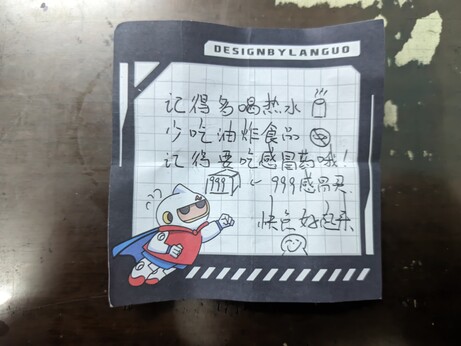 DESIGNBYLANGUO
记得多喝热水
少吃油炸食品
记得要吃感冒药哦!
999 ← 999感冒灵
快点好起来